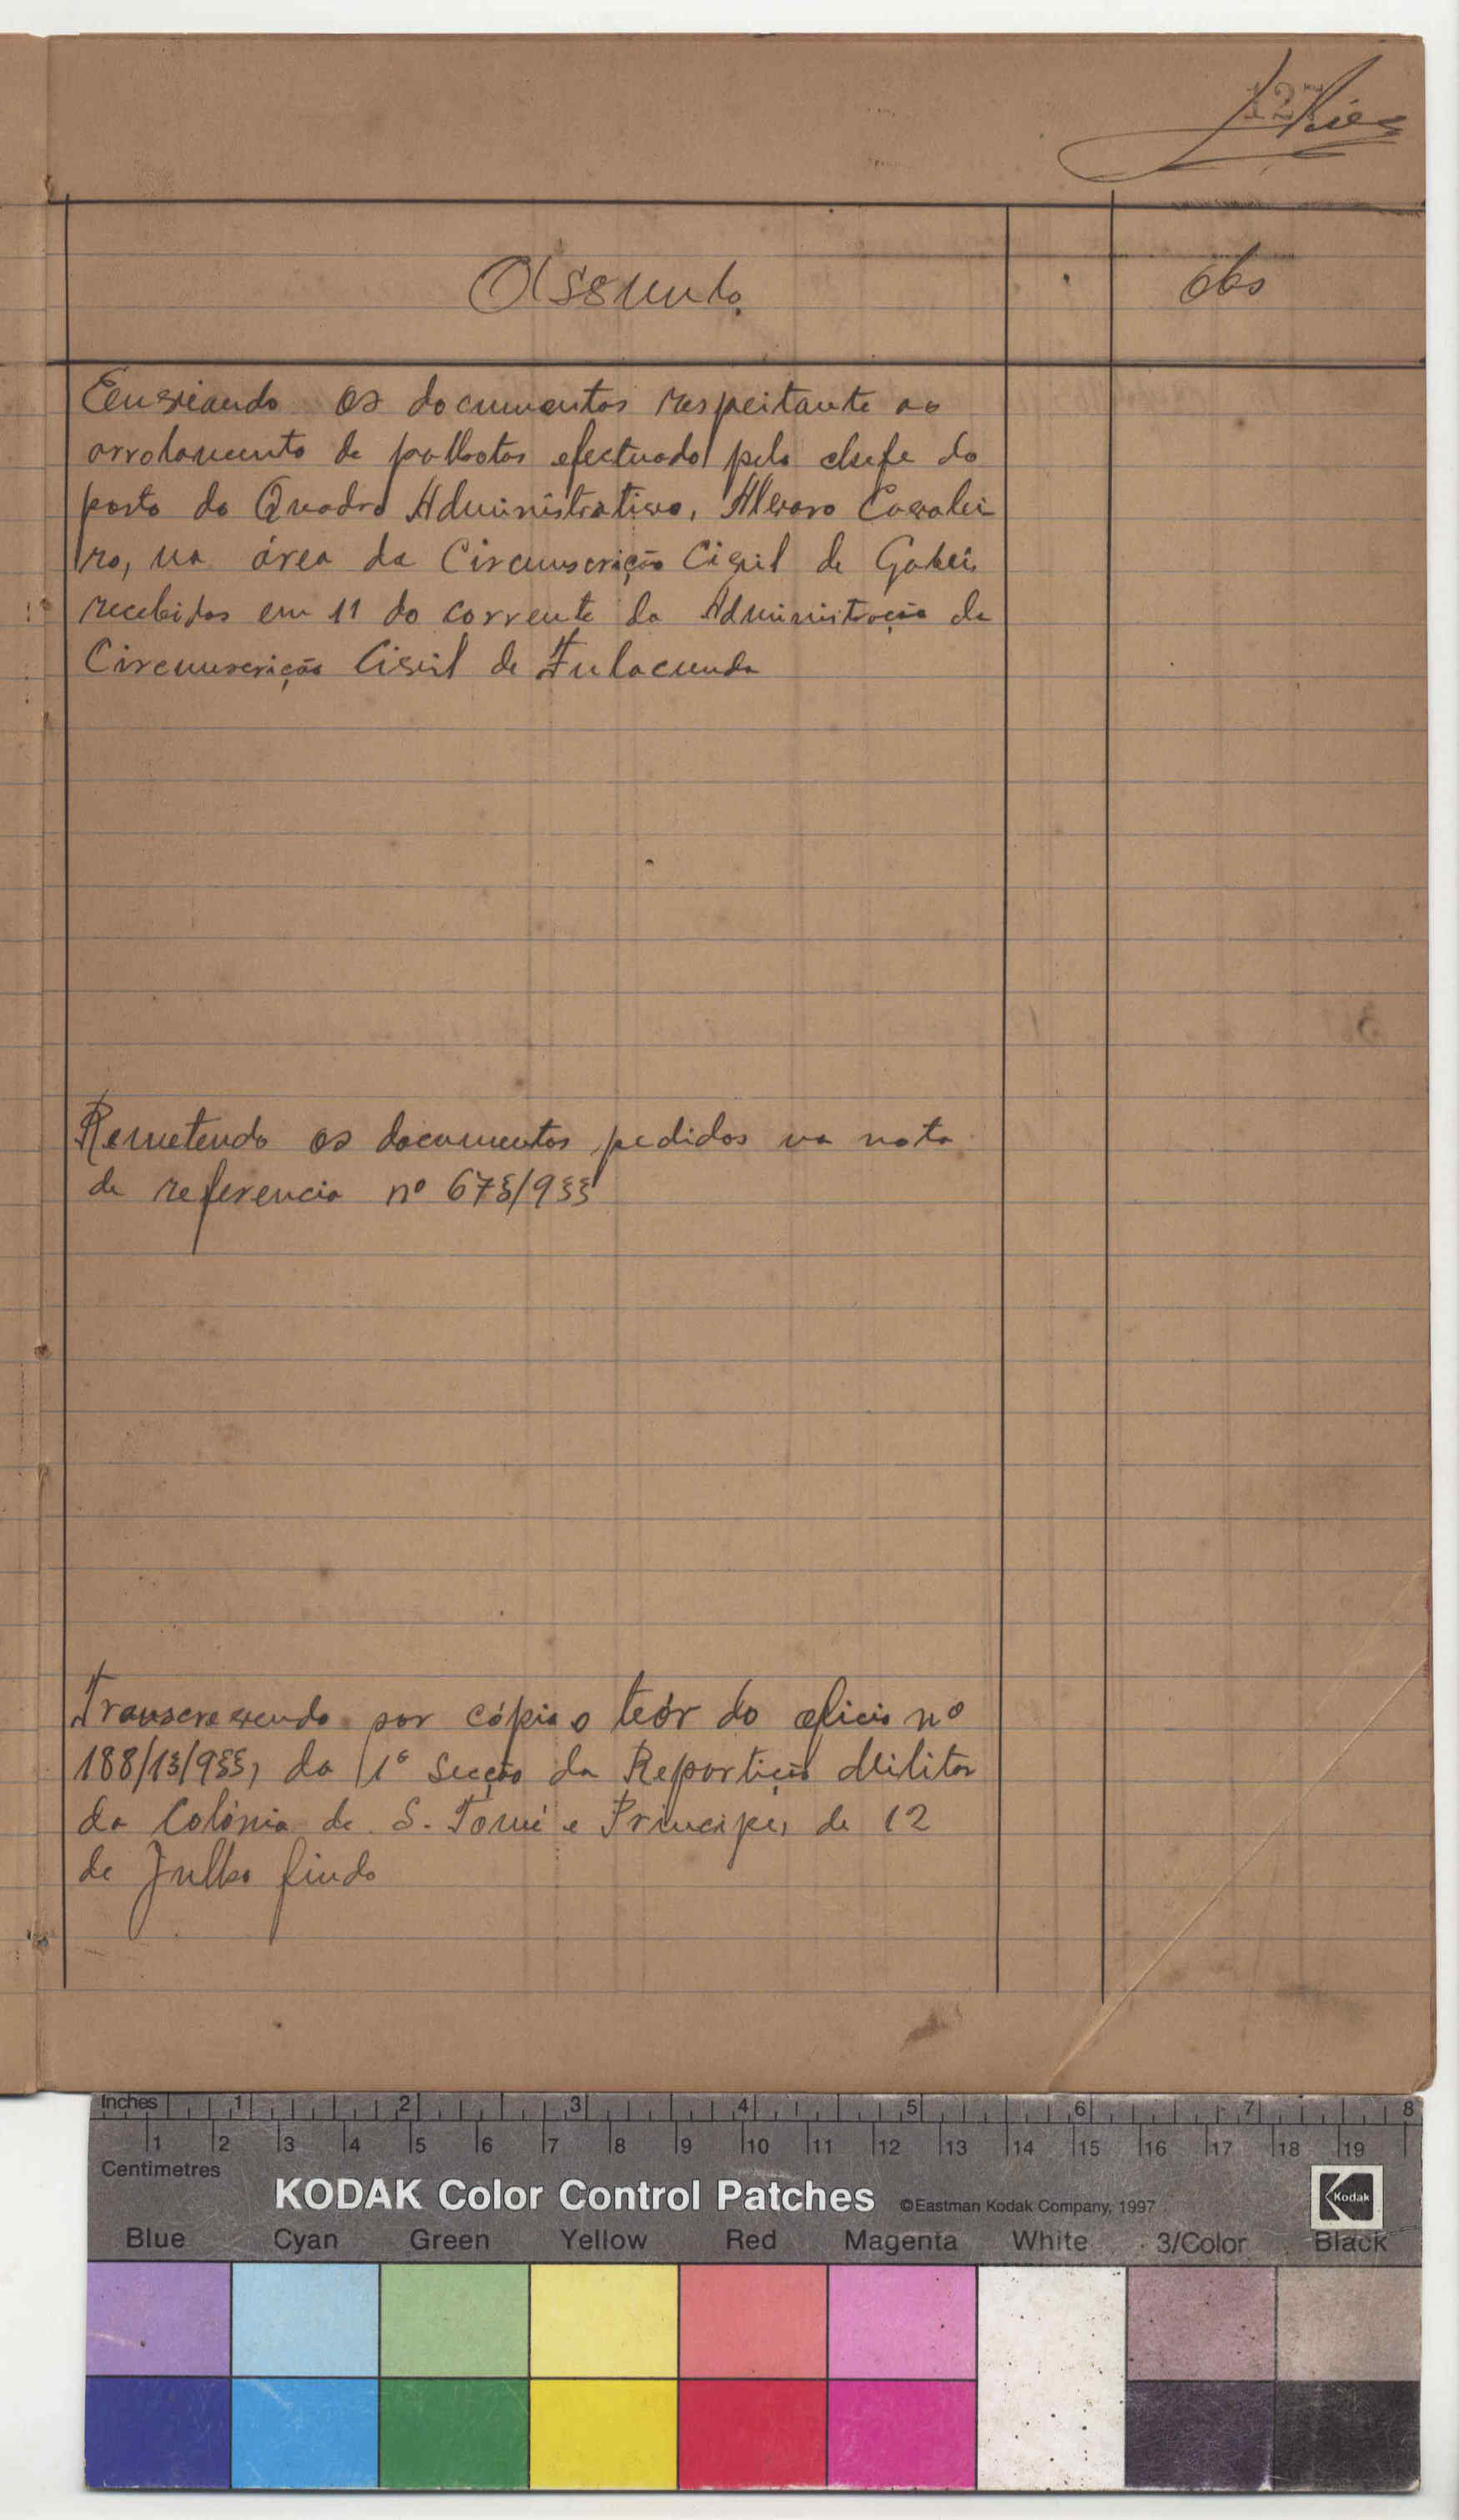 127
Assunto
Obs
Enviando os documentos respeitante ao
arrolamento de palhotas efectuado pelo chefe do
posto do Quadro Administrativo, Alvaro Cavalei
ro, na área da Circunscrição Civil de Gabú,
recebidos em 11 do corrente da Administração da
Circunscrição Civil de Fulacunda
Remetendo os documentos pedidos na nota
de referencia nº 673/933
Transcrevendo por cópia o teór do oficio nº
188/13/933, da 1ª Secção da Repartição Militar
da Colónia de S. Tomé e Principe, de 12
de Julho findo
Inches 1 2 3 4 5 6 7 8
1 2 3 4 5 6 7 8 9 10 11 12 13 14 15 16 17 18 19
Centimetres
KODAK Color Control Patches ©Eastman Kodak Company, 1997
Kodak
Blue Cyan Green Yellow Red Magenta White 3/Color Black